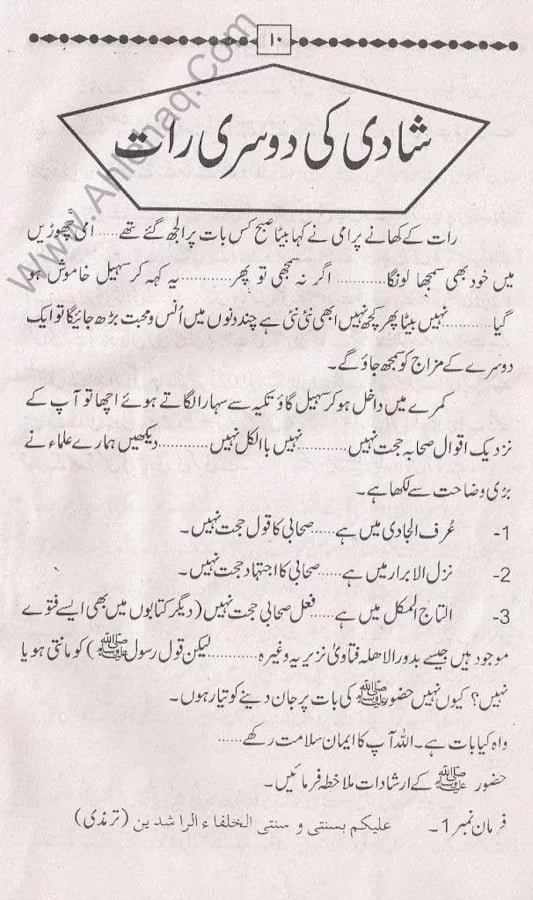 ۱۰
شادی کی دوسری رات
رات کے کھانے پر امی نے کہا بیٹا صبح کس بات پر الجھ گئے تھے..... امی چھوڑیں
میں خود بھی سمجھا لونگا............ اگر نہ سمجھی تو پھر............ یہ کہہ کر سہیل خاموش ہو
گیا............ نہیں بیٹا پھر کچھ نہیں ابھی نئی نئی ہے چند دنوں میں اُنس و محبت بڑھ جائیگا تو ایک
دوسرے کے مزاج کو سمجھ جاؤ گے۔
کمرے میں داخل ہو کر سہیل گاؤ تکیہ سے سہارا لگاتے ہوئے اچھا تو آپ کے
نزدیک اقوال صحابہ حجت نہیں............ نہیں باالکل نہیں............ دیکھیں ہمارے علماء نے
بڑی وضاحت سے لکھا ہے۔
1- عُرف الجادی میں ہے...... صحابی کا قول حجت نہیں۔
2- نزل الابرار میں ہے...... صحابی کا اجتہاد حجت نہیں۔
3- التاج المکلل میں ہے...... فعل صحابی حجت نہیں (دیگر کتابوں میں بھی ایسے فتوے
موجود ہیں جیسے بدور الاھلہ فتاویٰ نزیریہ وغیرہ............ لیکن قول رسول ﷺ) کو مانتی ہو یا
نہیں؟ کیوں نہیں حضور ﷺ کی بات پر جان دینے کو تیار ہوں۔
واہ کیا بات ہے۔ اللہ آپ کا ایمان سلامت رکھے......
حضور ﷺ کے ارشادات ملاخطہ فرمائیں۔
فرمان نمبر 1۔ علیکم بسنتی و سنتی الخلفاء الراشدین (ترمذی)
www.Ahlehaq.Com